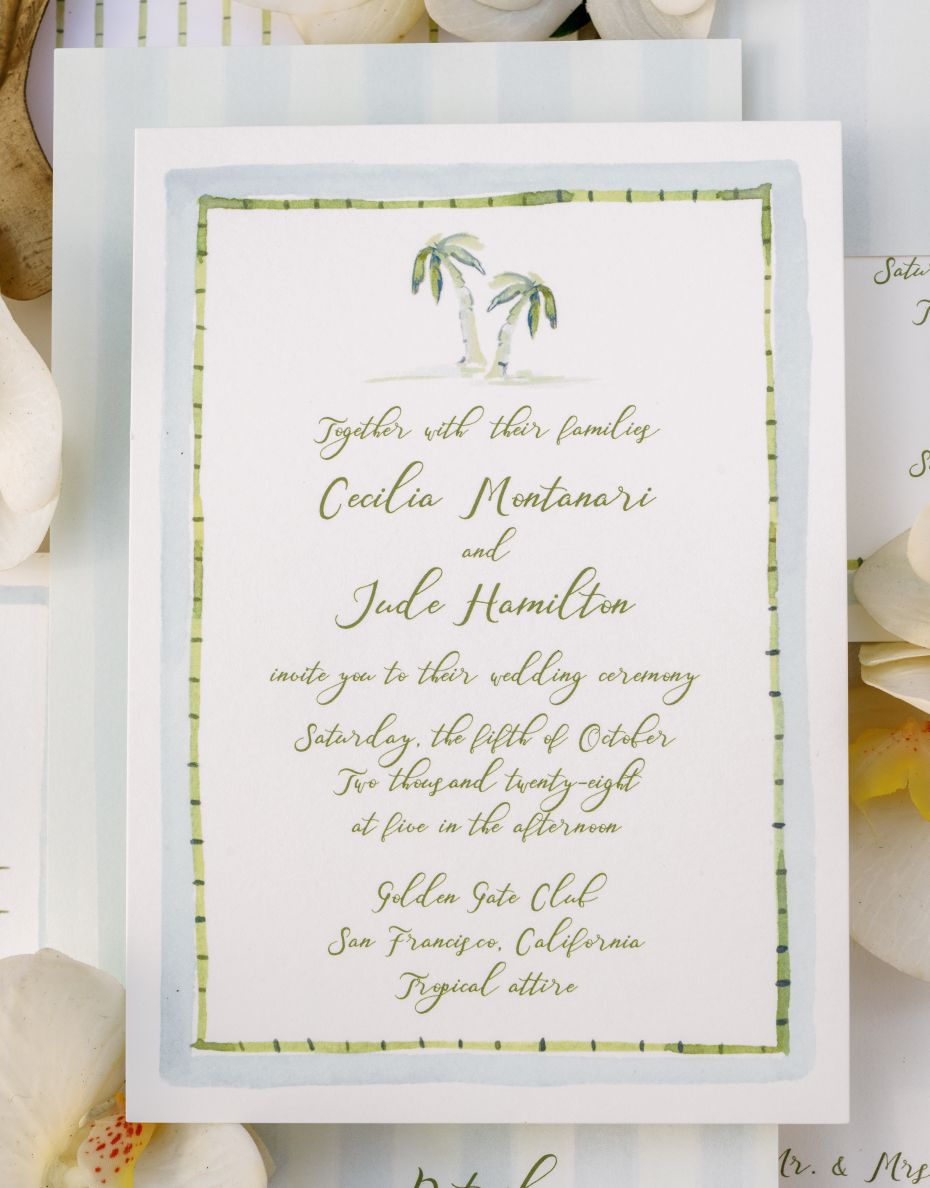 Together with their families
Cecilia Montanari
and
Jude Hamilton
invite you to their wedding ceremony
Saturday, the fifth of October
Two thousand twenty-eight
at five in the afternoon
Golden Gate Club
San Francisco, California
Tropical attire
Mr. & Mrs